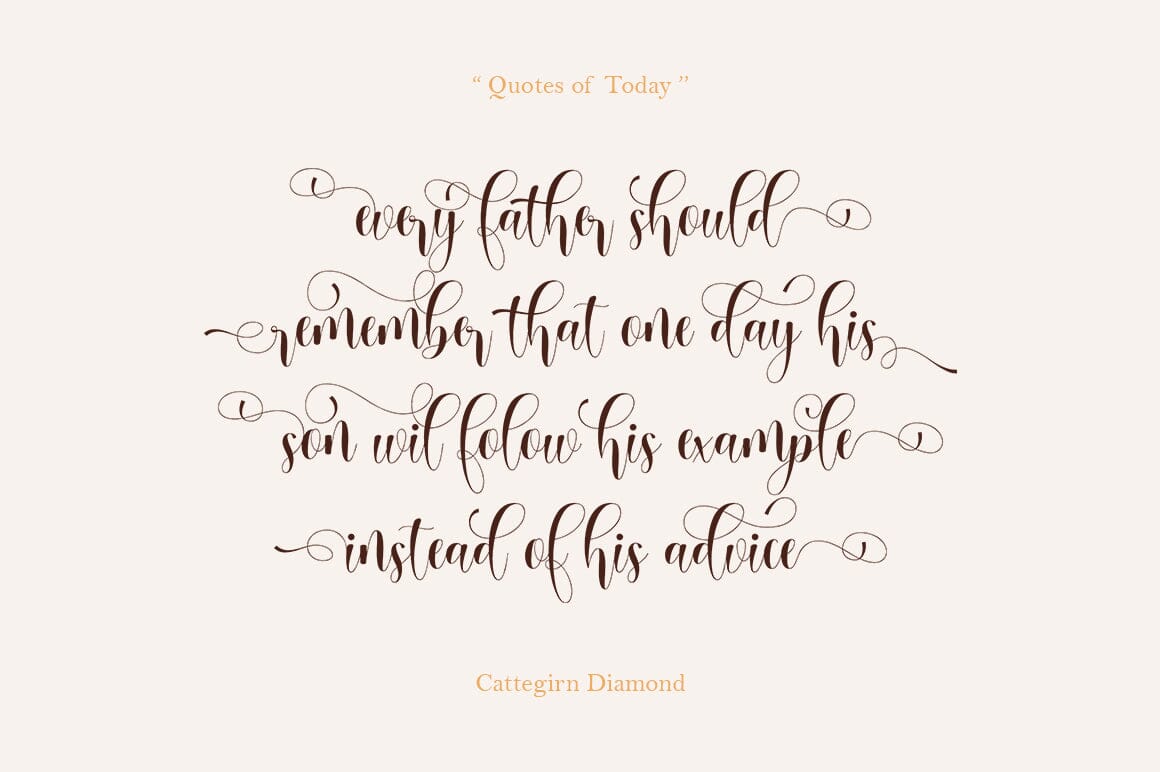 “ Quotes of Today ”
every father should
remember that one day his
son wil folow his example
instead of his advice
Cattegirn Diamond